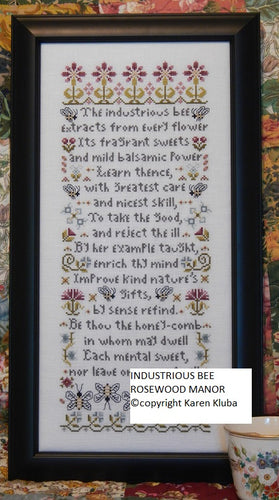 The industrious bee
extracts from every flower
Its fragrant sweets
and mild balsamic Power
Learn thence,
with greatest care
and nicest skill,
To take the Good,
and reject the ill
By her example taught,
enrich thy mind
Improve kind nature's
gifts,
by sense refind.
Be thou the honey-comb
in whom may dwell
Each mental sweet,
nor leave
INDUSTRIOUS BEE
ROSEWOOD MANOR
©copyright Karen Kluba